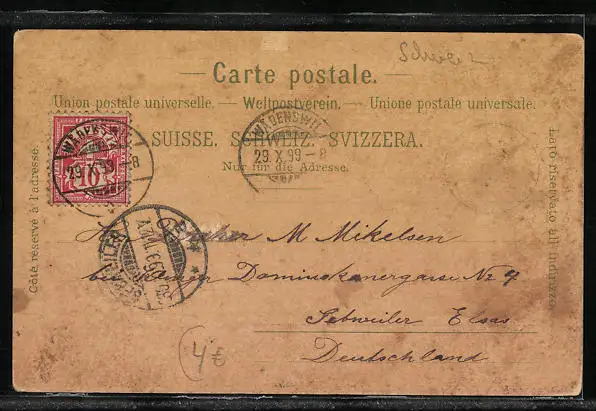 Schweiz
Carte postale.
Union postale universelle. — Weltpostverein. — Unione postale universale.
SUISSE. SCHWEIZ. SVIZZERA.
Nur für die Adresse.
Côté réservé à l'adresse.
Lato riservato all'indirizzo.
10
WÄDENSWIL
29.X.99–8
WÄDENSWIL
29.X.99–8
M Mikelsen
Dominikanergasse No 4
Gebweiler Elsas
Deutschland
4€